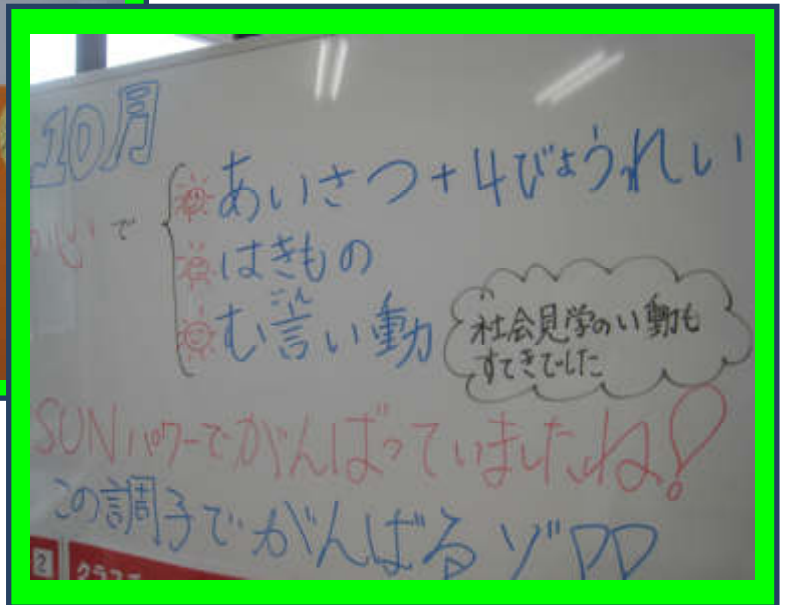 10月
心で
あいさつ+4びょうれい
はきもの
む言い動
ごん
社会見学のい動も
すてきでした
SUNパワーでがんばっていましたね!
この調子でがんばるゾ
2